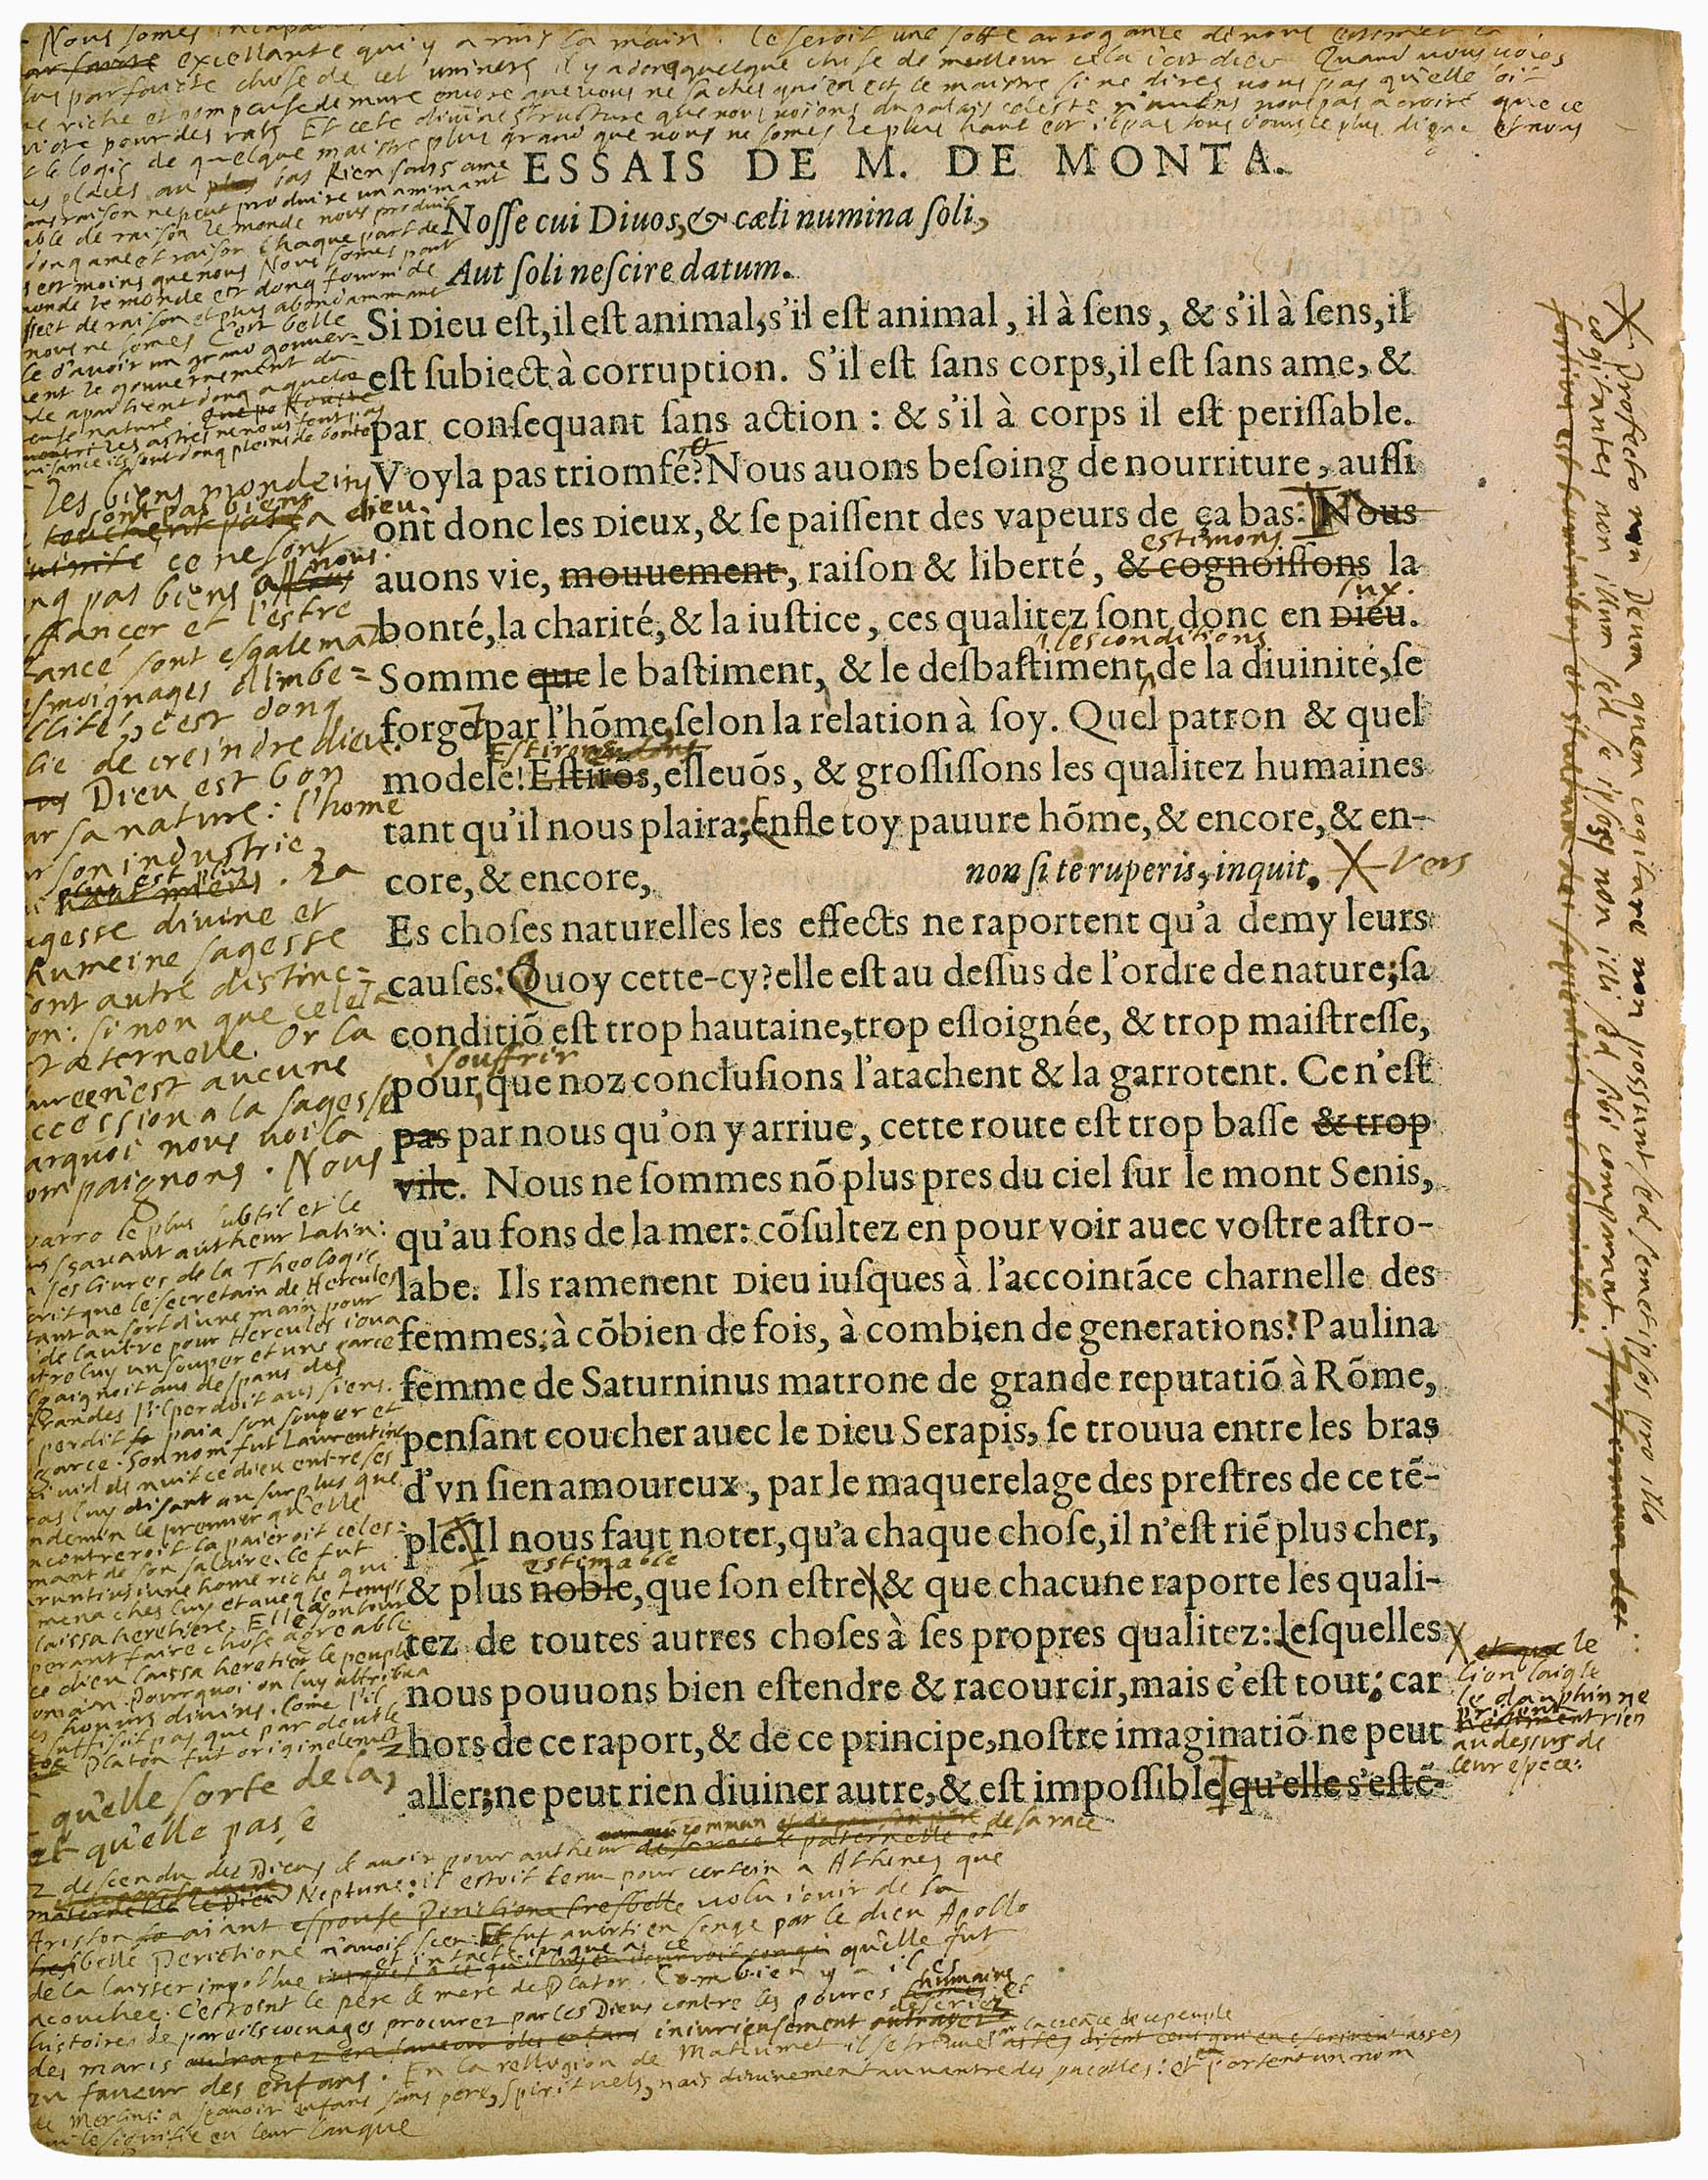 Nous somes
excellante qui y a mis la main. Ce seroit une sotte arrogance de nous estimer la
plus parfaicte chose de cet univers il y a donq quelque chose de meilleur cela c'est dieu Quand vous voies
riche et pompeuse demure encore que vous ne saches qui en est le maistre si ne dires vous pas qu'elle soit
pour des rats Et cete divine structure que nous voions du palais celeste n'avons nous pas a croire que ce
le logis de quelque maistre plus grand que nous ne somes le plus haut est il pas tousjours le plus digne et nous
places au plus bas Rien sans ame
sans raison ne peut produire un animant
able de raison le monde nous produit
donq ame et raison Chaque part de
est moins que nous Nous somes part
monde le monde est donq fourni de
de raison et plus abondammant
nous ne somes C'est belle
d'avoir un grand gouver=
le gouvernement du
apartient donq a quelque
nature.
les astres ne nous font pas
ils sont donq pleins de bonte
ESSAIS DE M. DE MONTA.
Nosse cui Diuos, & cæli numina soli,
Aut soli nescire datum.
Si Dieu est, il est animal, s'il est animal, il à sens, & s'il à sens, il
est subiect à corruption. S'il est sans corps, il est sans ame, &
par consequant sans action : & s'il à corps il est perissable.
Voyla pas triomfe? Nous auons besoing de nourriture, aussi
ont donc les Dieux, & se paissent des vapeurs de ça bas. Nous
estimons
auons vie, mouuement, raison & liberté, & cognoissons la
lux.
bonté, la charité, & la iustice, ces qualitez sont donc en Dieu.
les conditions
Somme que le bastiment, & le desbastiment, de la diuinité, se
forge par l'hõme, selon la relation à soy. Quel patron & quel
Estirons
modele! Estirõs, esleuõs, & grossissons les qualitez humaines
tant qu'il nous plaira; Enfle toy pauure hõme, & encore, & en-
core, & encore,
non si te ruperis, inquit. Vers
Es choses naturelles les effects ne raportent qu'a demy leurs
causes: Quoy cette-cy? elle est au dessus de l'ordre de nature; sa
conditiõ est trop hautaine, trop esloignée, & trop maistresse,
souffrir
pour, que noz conclusions l'atachent & la garrotent. Ce n'est
pas par nous qu'on y arriue, cette route est trop basse & trop
vile. Nous ne sommes nõ plus pres du ciel sur le mont Senis,
qu'au fons de la mer: cõsultez en pour voir auec vostre astro-
labe. Ils ramenent Dieu iusques à l'accointãce charnelle des
femmes: à cõbien de fois, à combien de generations! Paulina
femme de Saturninus matrone de grande reputatiõ à Rõme,
pensant coucher auec le Dieu Serapis, se trouua entre les bras
d'vn sien amoureux, par le maquerelage des prestres de ce tẽ-
ple. Il nous faut noter, qu'a chaque chose, il n'est riẽ plus cher,
estimable
& plus noble, que son estre & que chacune raporte les quali-
tez de toutes autres choses à ses propres qualitez: lesquelles
nous pouuons bien estendre & racourcir, mais c'est tout; car
hors de ce raport, & de ce principe, nostre imaginatiõ ne peut
aller; ne peut rien diuiner autre, & est impossible qu'elle s'estẽ-
les biens mondeins
sont pas biens
touchent pas a dieu.
ce ne sont
pas biens nous
offancer et l'estre
offancé sont esgalemant
tesmoignages d'imbe=
cillité, c'est donq
de creindre dieu.
Dieu est bon
par sa nature: l'home
par son industrie,
plus est plus
. La
sagesse divine et
humeine sagesse
ont autre distinc=
on: si non que celela
est æternelle. Or la
duree n'est aucune
accession a la sagesse
Parquoi nous voila
compaignons. Nous
varro le plus subtil et le
plus sçavant autheur Latin:
en ses livres de la Theologie
escrit que le secretain de Hercules
jetant au sort d'une main pour
de l'autre pour Hercules joua
contre luy un souper et une garce
gaignoit aus despans des
offrandes s'il perdoit aus siens.
perdit paia son souper et
garce. Son nom fut Laurentine
vid de nuit ce dieu entre ses
bras luy disant au surplus que
landemein le premier qu'elle
racontreroit la paieroit celes=
tement de son salaire. Ce fut
Taruntius june home riche qui
mena ches luy et aveq le temps
laissa heretiere. Elle a son tour
esperant faire chose agreable
ce dieu laissa heretier le peuple
romain. Pourquoi on luy attribua
les honurs divins. Come s'il
suffisoit pas que par double
Platon fut originelemet
qu'elle sorte de la,
et qu'elle passe
descendu des Dieus & avoir pour autheur commun de sa race
Neptune: il estoit tenu pour certein a Athenes que
Ariston aiant espousé Perictione volu jouir de la
belle Perictione n'avoit sceu: Et fut averti en songe par le dieu Apollo
de la laisser impollue et intacte jusque a ce qu'elle fut
acouchee. C'estoint le pere & mere de Platon. Combien y a il es
histoires de pareils cocuages procurez par les Dieus contre les povres humains et
des maris injurieusement descriez
en faveur des enfans. En la relligion de Mahumet il se treuve par la creance de ce peuple asses
de Merlins: a sçavoir enfans sans pere, spirituels, nais divinement au ventre des pucelles: et portent un nom
qui le signifie en leur langue
Profecto non Deum quem cogitare non possunt, sed semetipsos pro illo
cogitantes non illum sed se ipsos non illi sed sibi comparant.
et que le
lion l'aigle
le dauphin ne
prisent rien
au dessus de
leur espece: